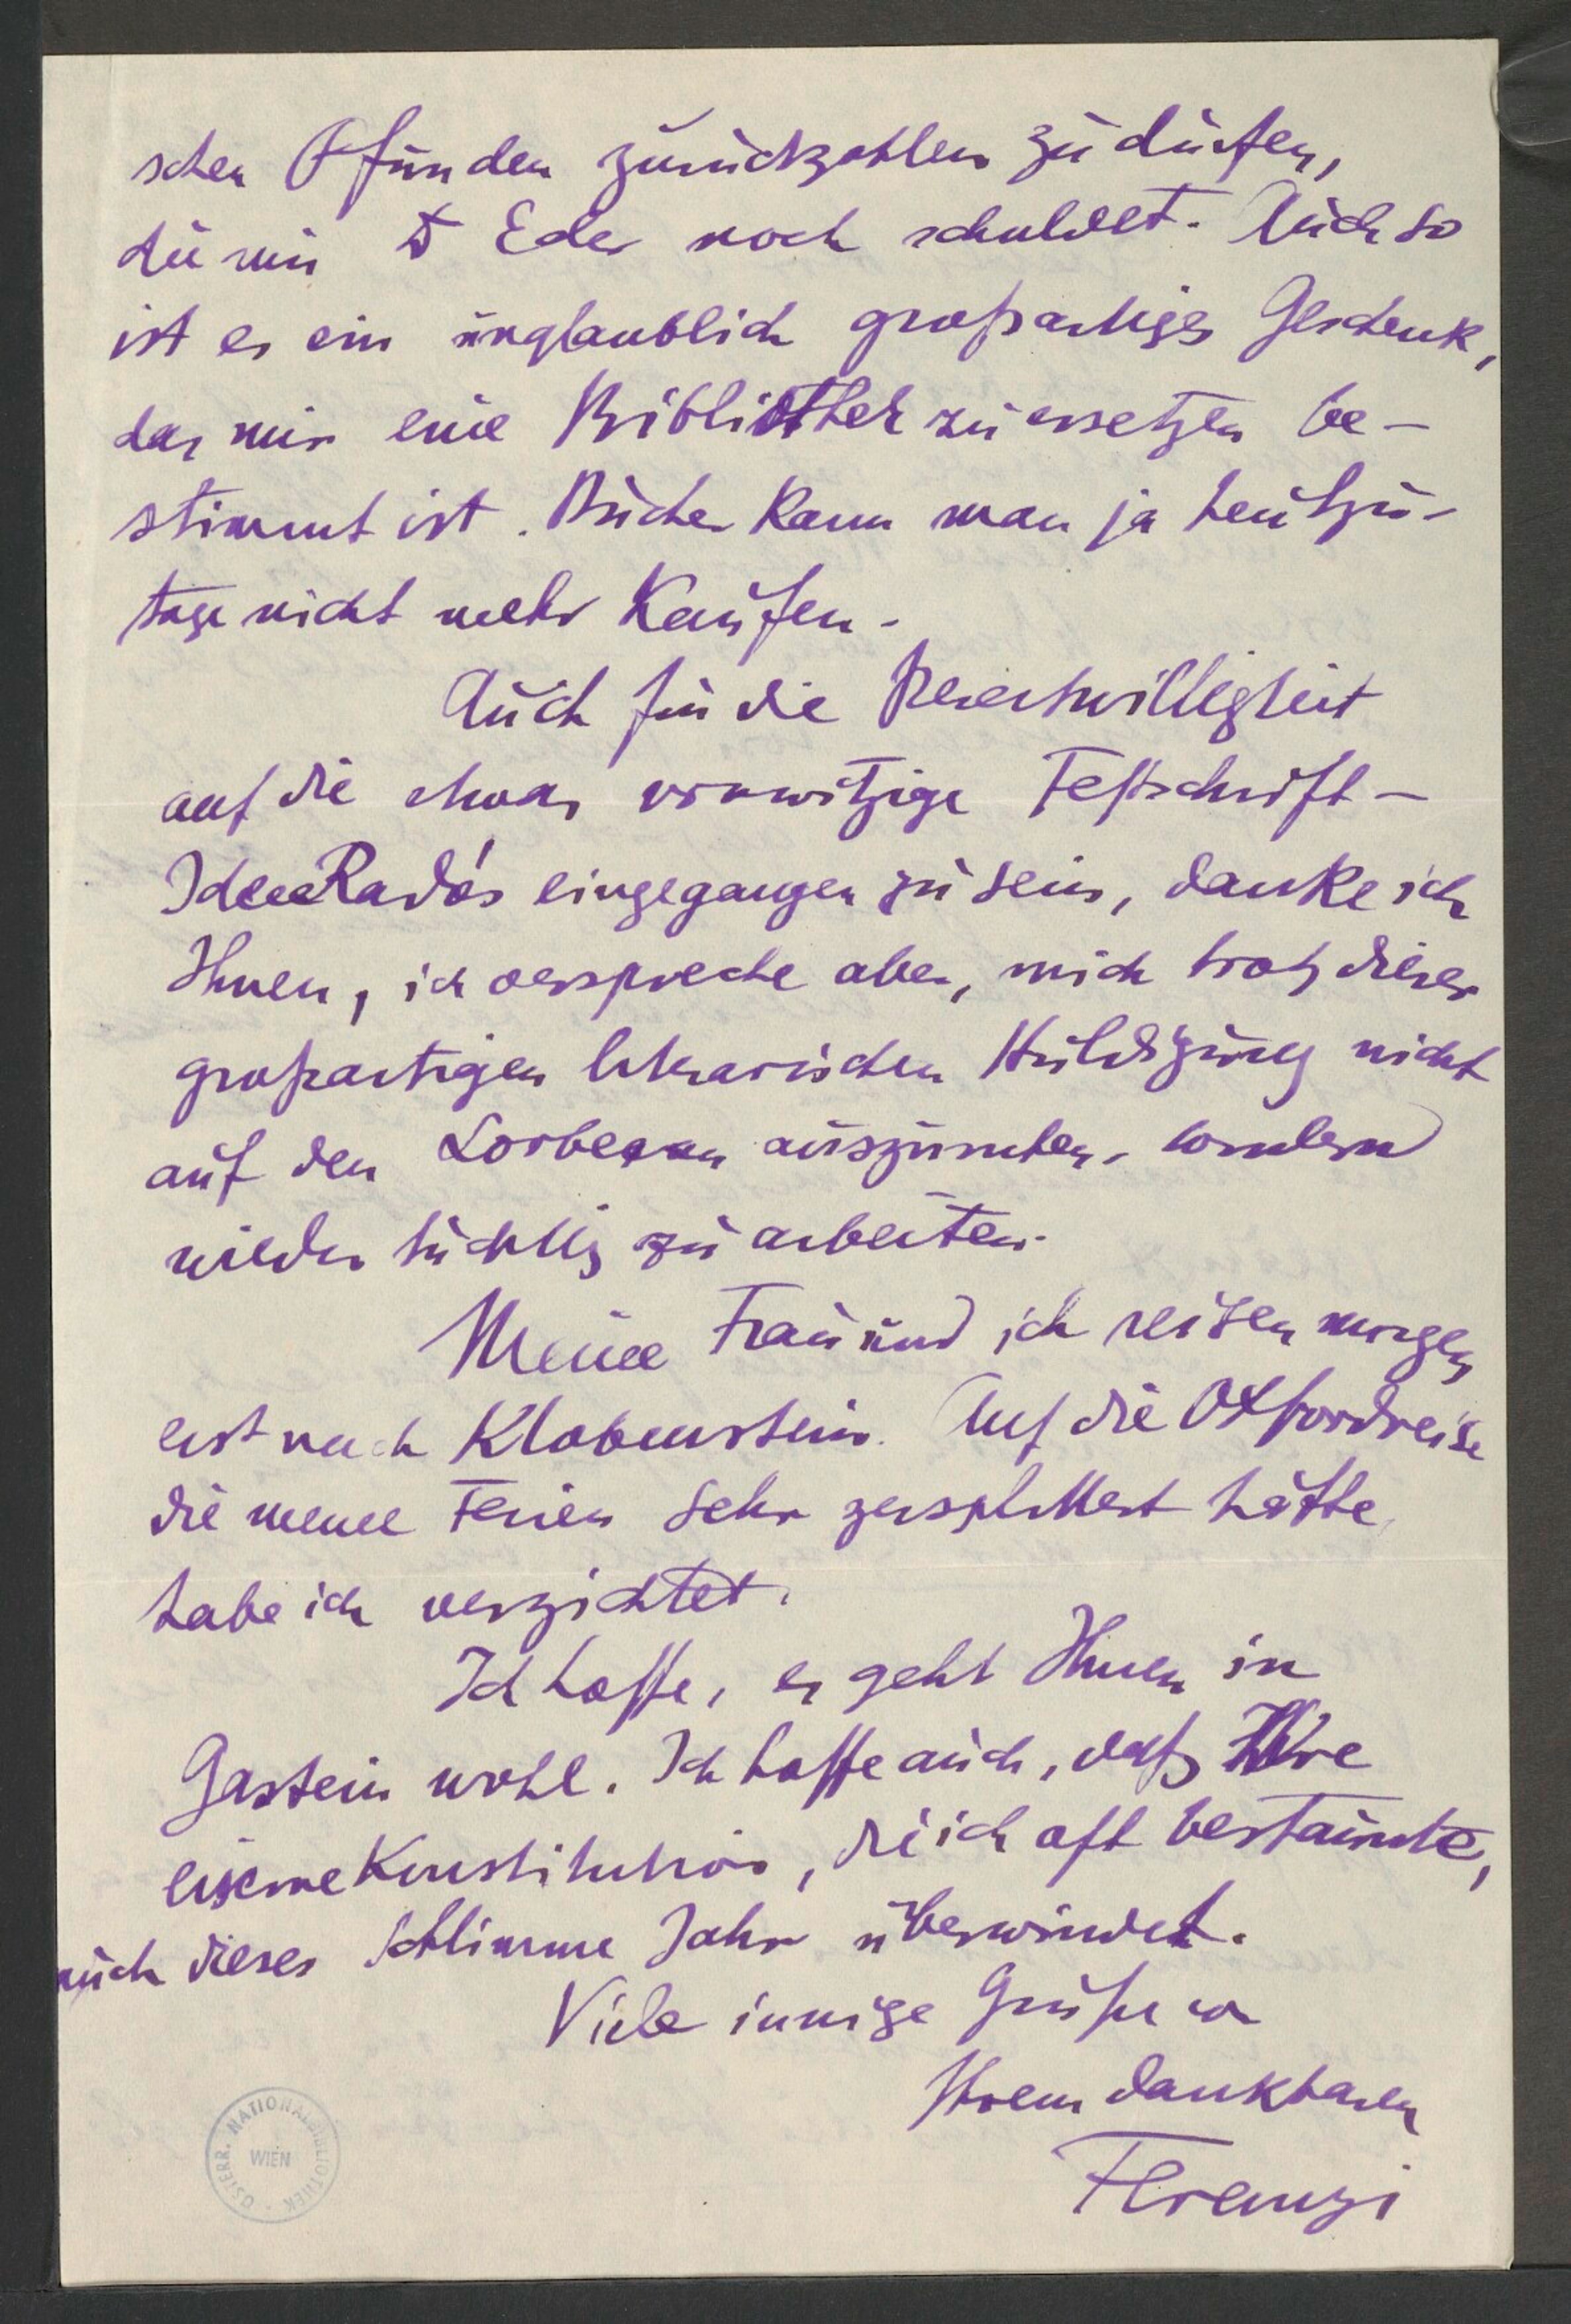 schen Pfunden zurückzahlen zu dürfen,
die mir Dr Eder noch schuldet. Auch so
ist es ein unglaublich großartiges Geschenk,
das mir eine Bibliothek zu ersetzen be-
stimmt ist. Bücher kann man ja heutzu-
tage nicht mehr kaufen.
Auch für die Bereitwilligkeit
auf die etwas vorwitzige Festschrift-
Idee Radó's eingegangen zu sein, danke ich
Ihnen, ich verspreche aber, mich trotz dieser
großartigen literarischen Huldigung nicht
auf den Lorbeeren auszuruhen, sondern
wieder tüchtig zu arbeiten.
Meine Frau und ich reisen morgen
erst nach Klobenstein. Auf die Oxfordreise
die meine Ferien sehr zersplittert hätte,
habe ich verzichtet.
Ich hoffe, es geht Ihnen in
Gastein wohl. Ich hoffe auch, daß Ihre
eiserne Konstitution, die ich oft bestaunte,
auch dieses schlimme Jahr überwindet.
Viele innige Grüße von
Ihrem dankbaren
Ferenczi
ÖSTERR. NATIONALBIBLIOTHEK
WIEN